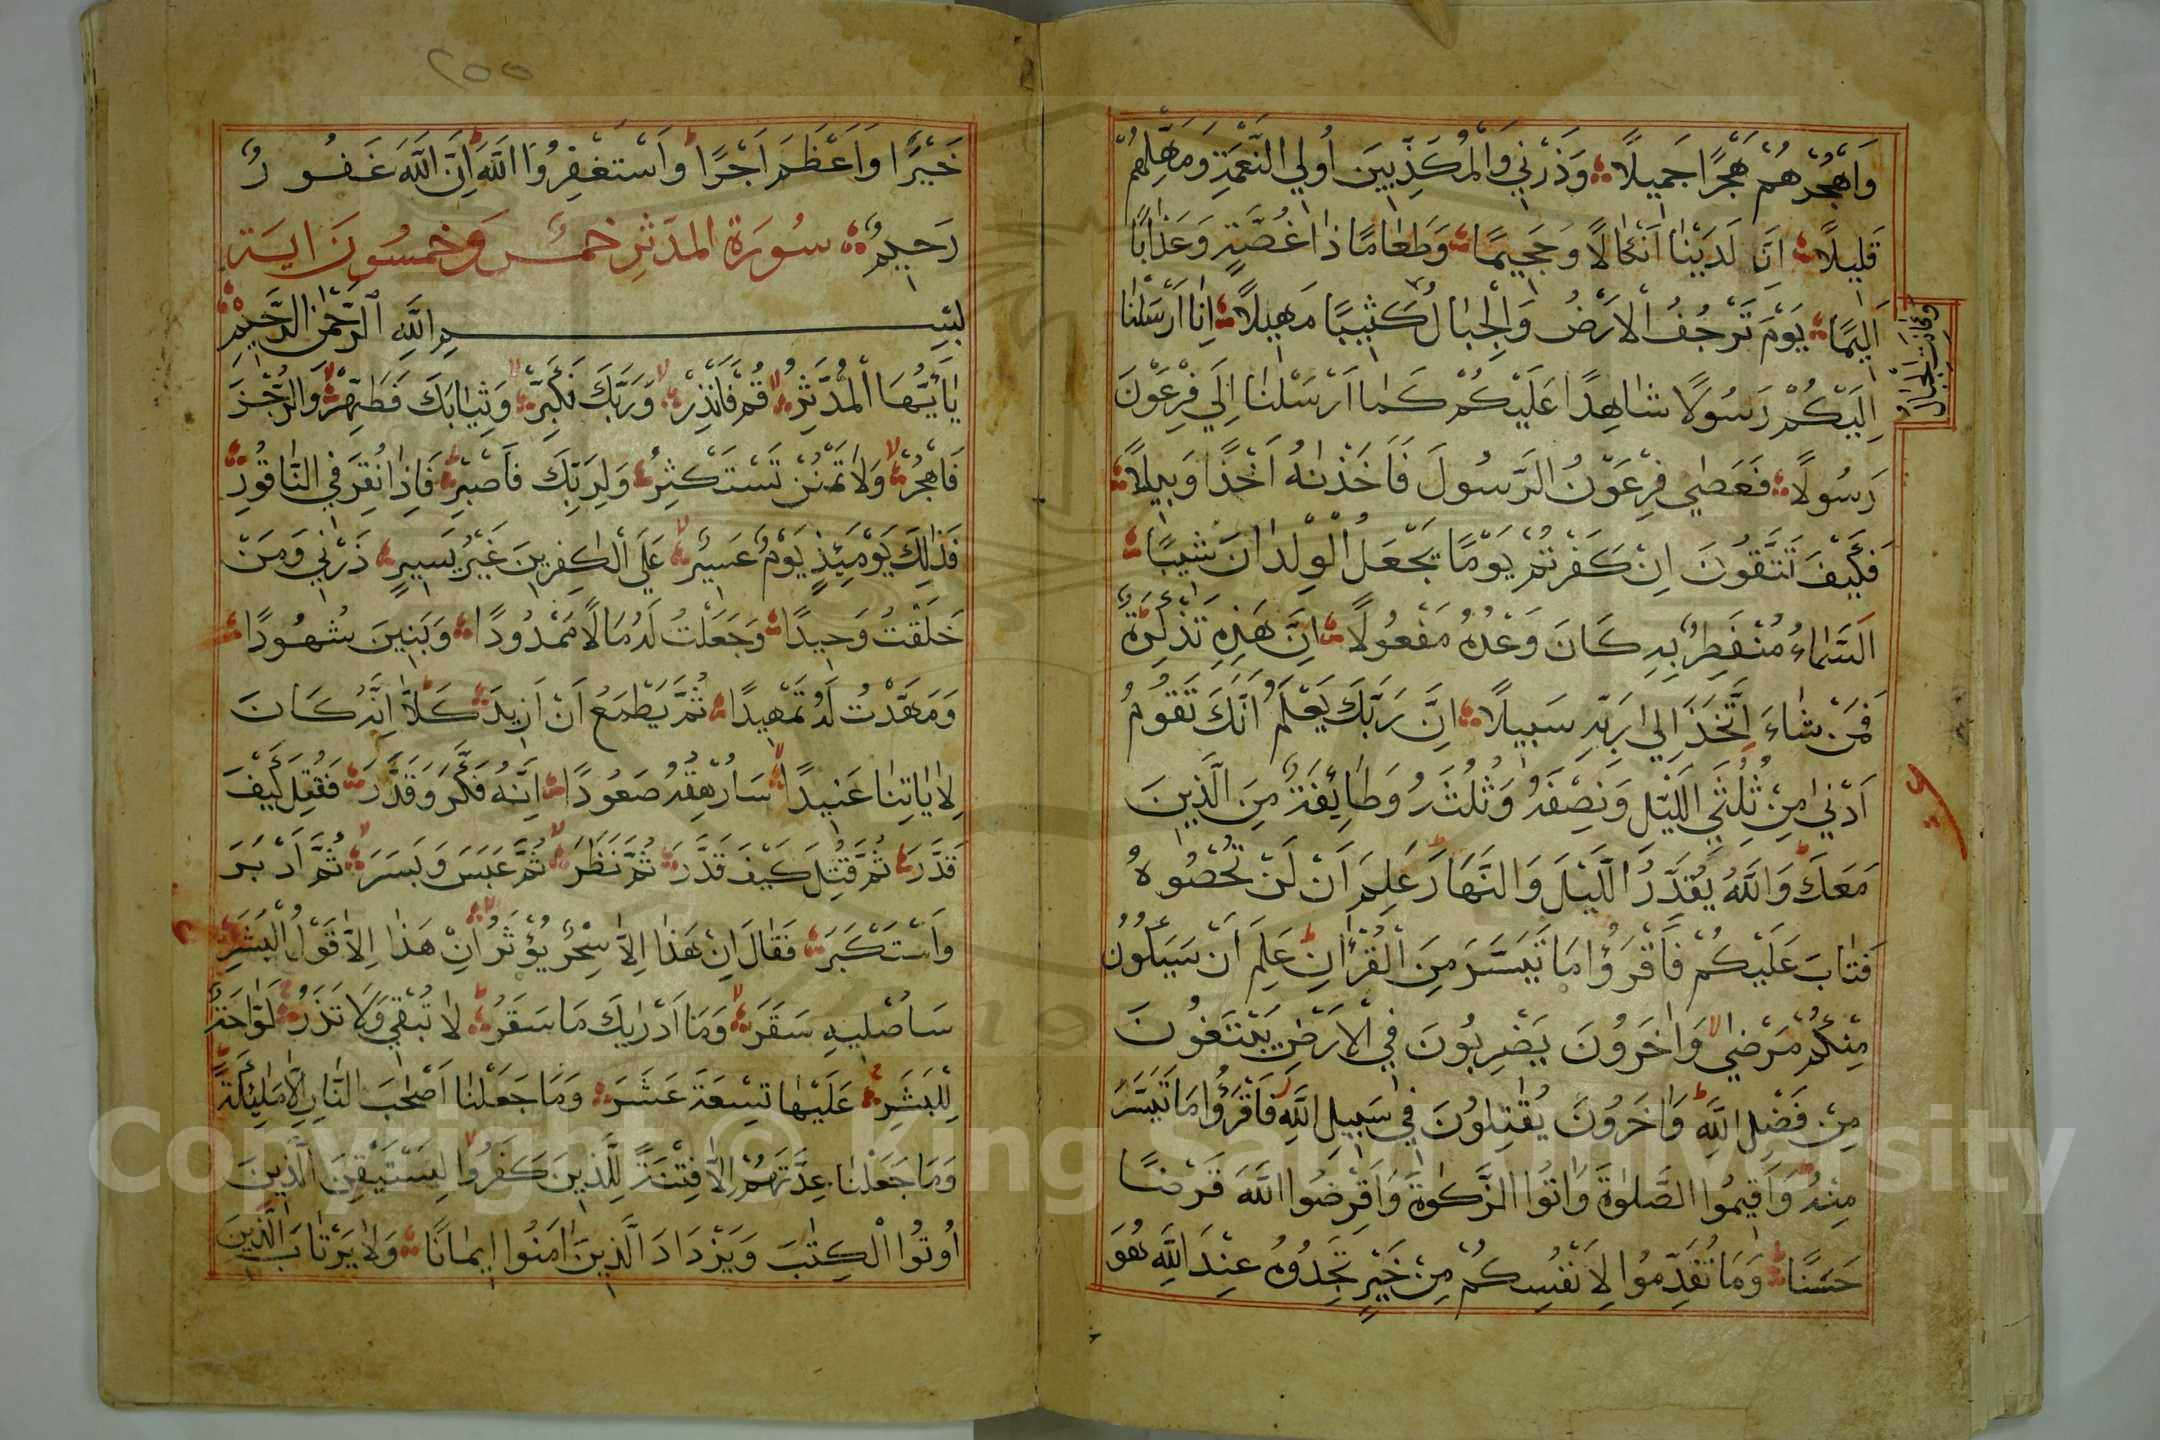 وَاهْجُرْهُمْ هَجْرًا جَمِيلًا وَذَرْنِي وَالْمُكَذِّبِينَ أُولِي النَّعْمَةِ وَمَهِّلْهُمْ
قَلِيلًا اِنَّ لَدَيْنَا اَنْكَالًا وَجَحِيمًا وَطَعَامًا ذَا غُصَّةٍ وَعَذَابًا
اَلِيمًا يَوْمَ تَرْجُفُ الْاَرْضُ وَالْجِبَالُ كَثِيبًا مَهِيلًا اِنَّا اَرْسَلْنَا
وكانت الجبال
اِلَيْكُمْ رَسُولًا شَاهِدًا عَلَيْكُمْ كَمَا اَرْسَلْنَا اِلَى فِرْعَوْنَ
رَسُولًا فَعَصٰى فِرْعَوْنُ الرَّسُولَ فَاَخَذْنٰهُ اَخْذًا وَبِيلًا
فَكَيْفَ تَتَّقُونَ اِنْ كَفَرْتُمْ يَوْمًا يَجْعَلُ الْوِلْدَانَ شِيبًا
اَلسَّمَاءُ مُنْفَطِرٌ بِهِ كَانَ وَعْدُهُ مَفْعُولًا اِنَّ هَذِهِ تَذْكِرَةٌ
فَمَنْ شَاءَ اتَّخَذَ اِلَى رَبِّهِ سَبِيلًا اِنَّ رَبَّكَ يَعْلَمُ اَنَّكَ تَقُومُ
اَدْنٰى مِنْ ثُلُثَيِ الَّيْلِ وَنِصْفَهُ وَثُلُثَهُ وَطَائِفَةٌ مِنَ الَّذِينَ
مَعَكَ وَاللَّهُ يُقَدِّرُ الَّيْلَ وَالنَّهَارَ عَلِمَ اَنْ لَنْ تُحْصُوهُ
فَتَابَ عَلَيْكُمْ فَاقْرَؤُا مَا تَيَسَّرَ مِنَ الْقُرْاٰنِ عَلِمَ اَنْ سَيَكُونُ
مِنْكُمْ مَرْضٰى وَاٰخَرُونَ يَضْرِبُونَ فِي الْاَرْضِ يَبْتَغُونَ
مِنْ فَضْلِ اللَّهِ وَاٰخَرُونَ يُقٰتِلُونَ فِي سَبِيلِ اللَّهِ فَاقْرَؤُا مَا تَيَسَّرَ
مِنْهُ وَاَقِيمُوا الصَّلٰوةَ وَاٰتُوا الزَّكٰوةَ وَاَقْرِضُوا اللَّهَ قَرْضًا
حَسَنًا وَمَا تُقَدِّمُوا لِاَنْفُسِكُمْ مِنْ خَيْرٍ تَجِدُوهُ عِنْدَ اللَّهِ هُوَ
٢٥٥
خَيْرًا وَاَعْظَمَ اَجْرًا وَاسْتَغْفِرُوا اللَّهَ اِنَّ اللَّهَ غَفُورٌ
رَحِيمٌ سُورَة المدَثر خمسٌ وَخمسُونَ اية
بِسْمِ اللَّهِ الرَّحْمٰنِ الرَّحِيمِ
يٰاَيُّهَا الْمُدَّثِّرُ قُمْ فَاَنْذِرْ وَرَبَّكَ فَكَبِّرْ وَثِيَابَكَ فَطَهِّرْ وَالرُّجْزَ
فَاهْجُرْ وَلَا تَمْنُنْ تَسْتَكْثِرُ وَلِرَبِّكَ فَاصْبِرْ فَاِذَا نُقِرَ فِي النَّاقُورِ
فَذٰلِكَ يَوْمَئِذٍ يَوْمٌ عَسِيرٌ عَلَى الْكٰفِرِينَ غَيْرُ يَسِيرٍ ذَرْنِي وَمَنْ
خَلَقْتُ وَحِيدًا وَجَعَلْتُ لَهُ مَالًا مَمْدُودًا وَبَنِينَ شُهُودًا
وَمَهَّدْتُ لَهُ تَمْهِيدًا ثُمَّ يَطْمَعُ اَنْ اَزِيدَ كَلَّا اِنَّهُ كَانَ
لِاٰيَاتِنَا عَنِيدًا سَاُرْهِقُهُ صَعُودًا اِنَّهُ فَكَّرَ وَقَدَّرَ فَقُتِلَ كَيْفَ
قَدَّرَ ثُمَّ قُتِلَ كَيْفَ قَدَّرَ ثُمَّ نَظَرَ ثُمَّ عَبَسَ وَبَسَرَ ثُمَّ اَدْبَرَ
وَاسْتَكْبَرَ فَقَالَ اِنْ هَذَا اِلَّا سِحْرٌ يُؤْثَرُ اِنْ هَذَا اِلَّا قَوْلُ الْبَشَرِ
سَاُصْلِيهِ سَقَرَ وَمَا اَدْرٰيكَ مَا سَقَرُ لَا تُبْقِي وَلَا تَذَرُ لَوَّاحَةٌ
لِلْبَشَرِ عَلَيْهَا تِسْعَةَ عَشَرَ وَمَا جَعَلْنَا اَصْحٰبَ النَّارِ اِلَّا مَلٰئِكَةً
وَمَا جَعَلْنَا عِدَّتَهُمْ اِلَّا فِتْنَةً لِلَّذِينَ كَفَرُوا لِيَسْتَيْقِنَ الَّذِينَ
اُوتُوا الْكِتٰبَ وَيَزْدَادَ الَّذِينَ اٰمَنُوا اِيمَانًا وَلَا يَرْتَابَ الَّذِينَ
Copyright © King Saud University